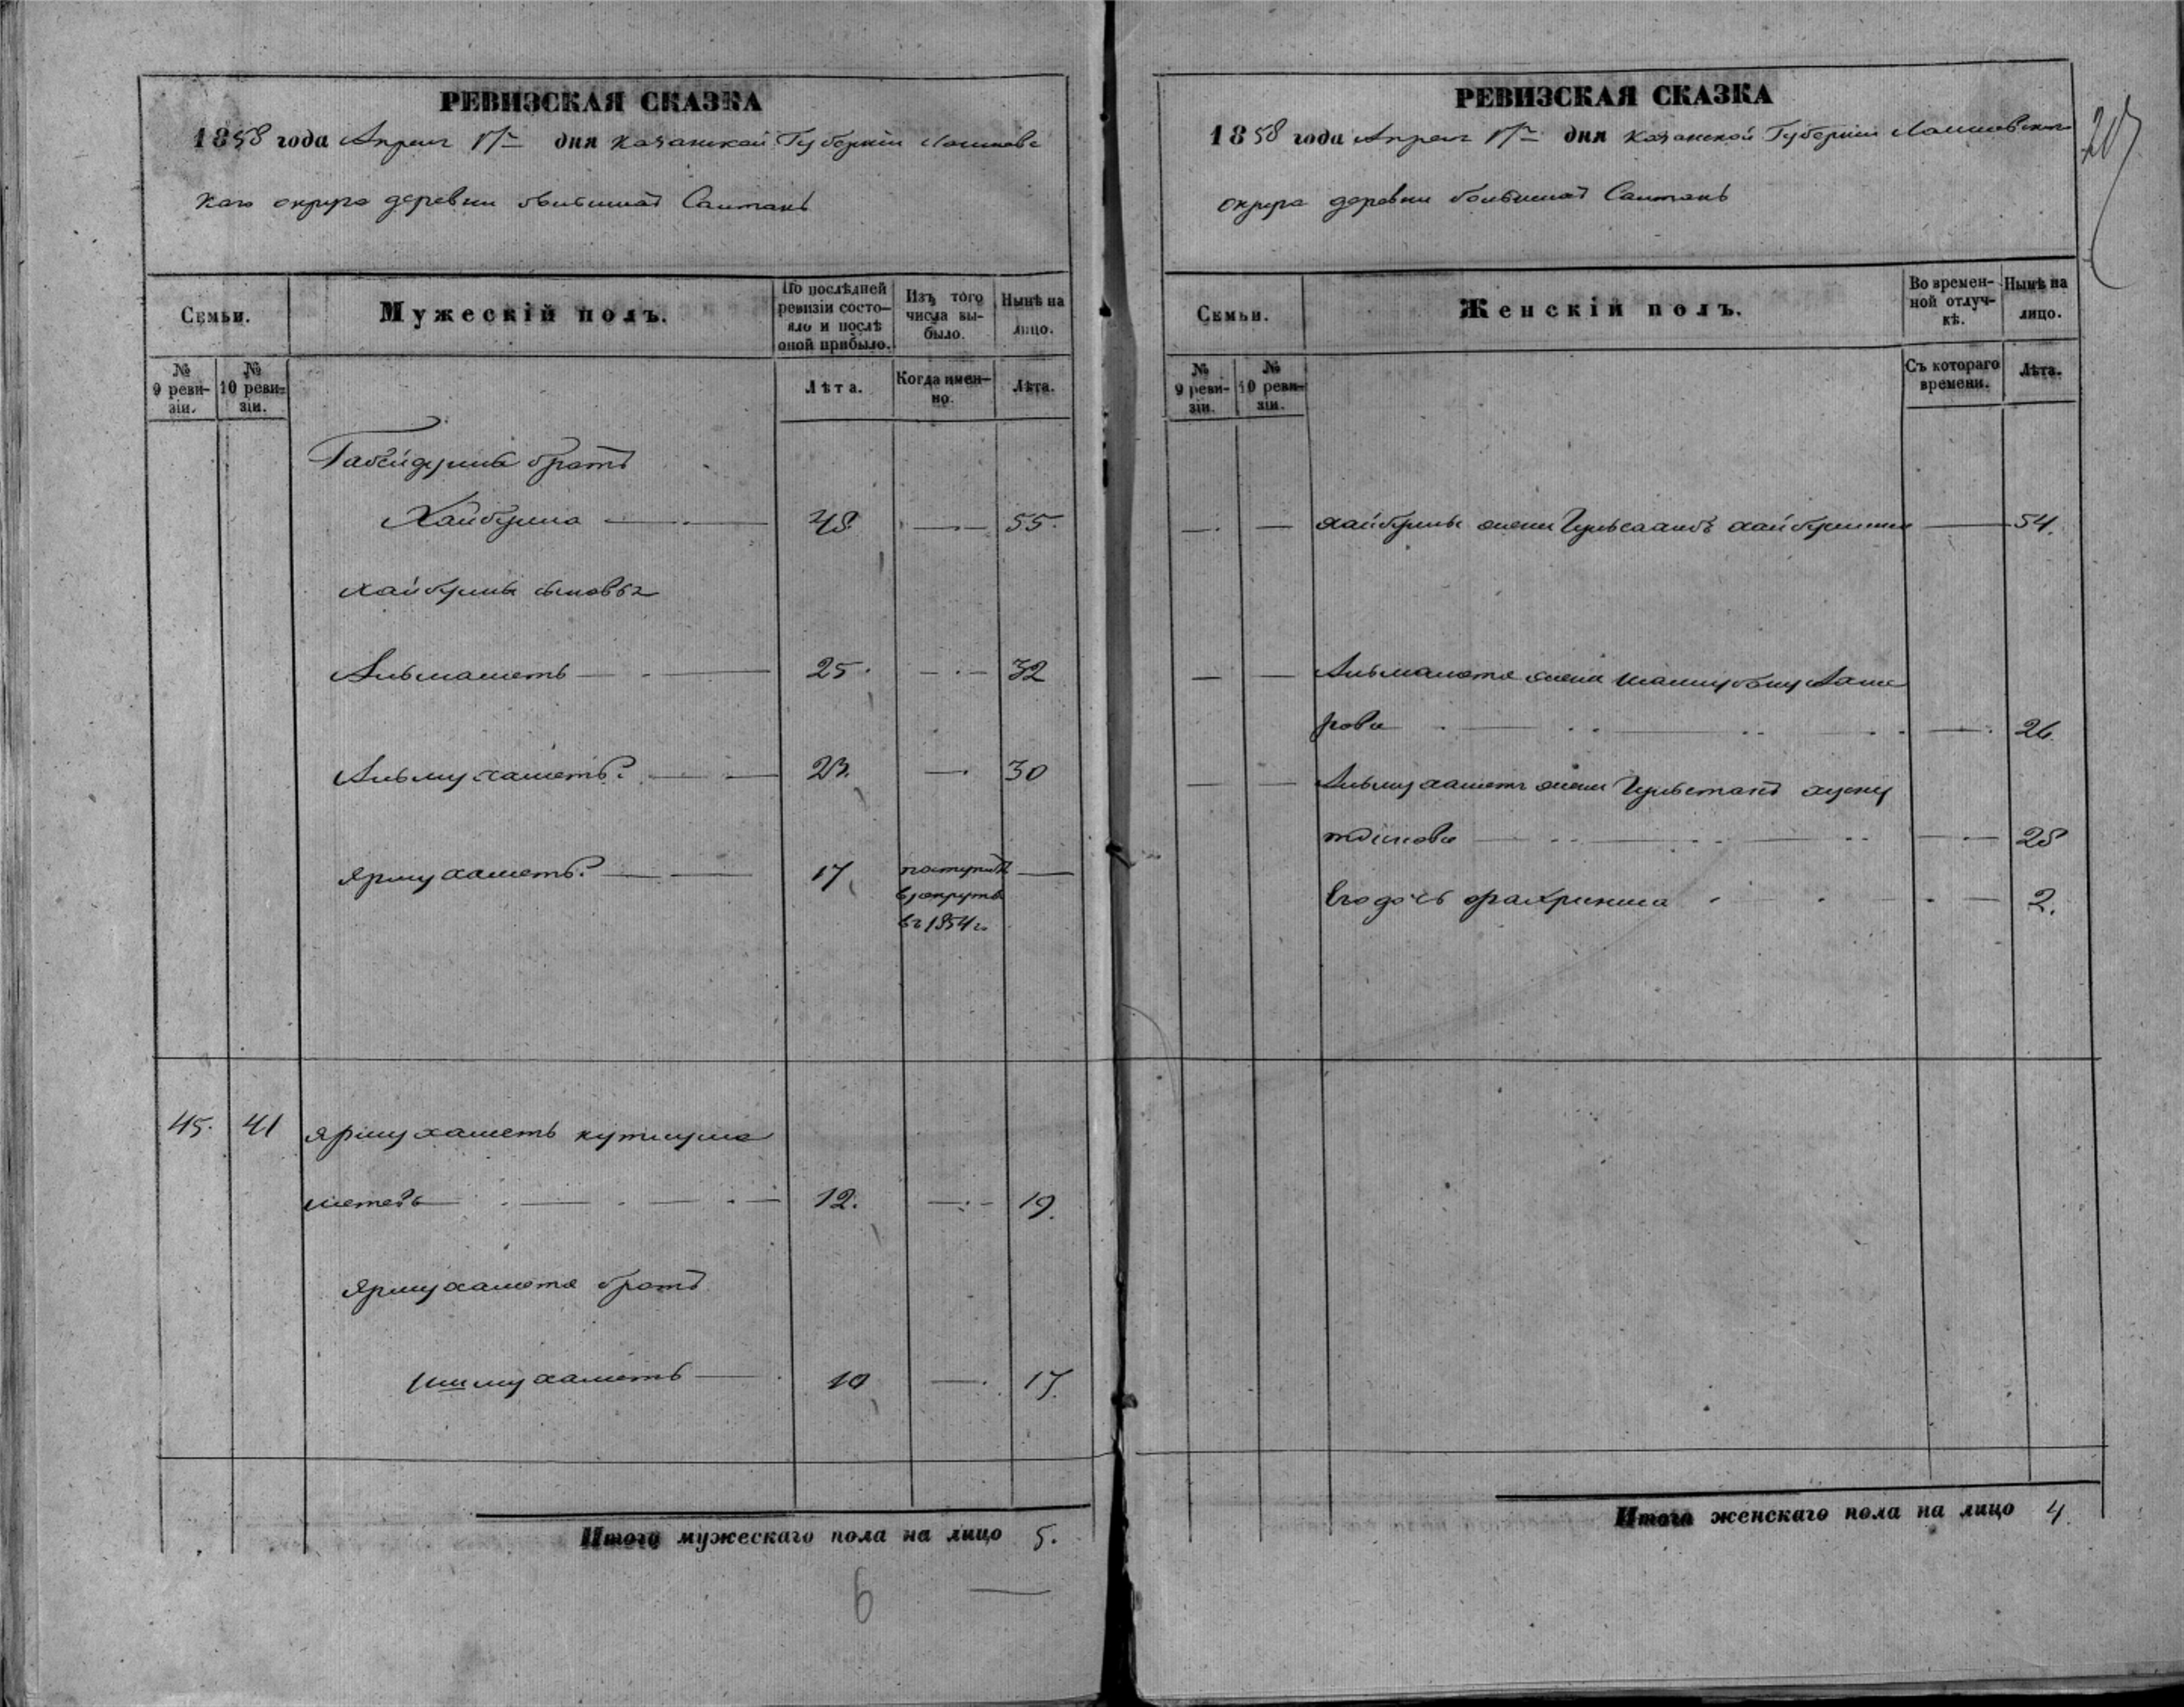 РЕВИЗСКАЯ СКАЗКА
1858 года Апреля дня Казанской Губернии Лаишевс
каго округа деревни большой Саитань
Семьи.
Мужескій полъ.
По послѣдней ревизіи состояло и послѣ оной прибыло.
Изъ того числа выбыло.
Нынѣ на лицо.
№ 9 ревизіи.
№ 10 ревизіи.
Лѣта.
Когда именно.
Лѣта.
Габейдулы братъ
Хайбулла 48 55.
Хайбуллы сыновья
Альмаметь 25. 32
Альмухаметь 23. 30
Ярмухаметь 17 поступилъ
в рекруты
въ 1854 г.
45. 41 Ярмухаметь Кутлума
метевъ 12. 19.
Ярмухаметя братъ
Ишмухаметь 10 17.
Итого мужескаго пола на лицо 5.
6
РЕВИЗСКАЯ СКАЗКА
1858 года Апреля дня Казанской Губернии Лаишевскаго
округа деревни большой Саитань
207
Семьи.
Женскій полъ.
Во временной отлучкѣ.
Нынѣ на лицо.
№ 9 ревизіи.
№ 10 ревизіи.
Съ котораго времени.
Лѣта.
Хайбуллы жена 54.
Альмаметя жена
рова 26
Альмухаметя жена Гульстанъ Хусну
тдинова 28
Его дочь Фахриниса 2.
Итого женскаго пола на лицо 4